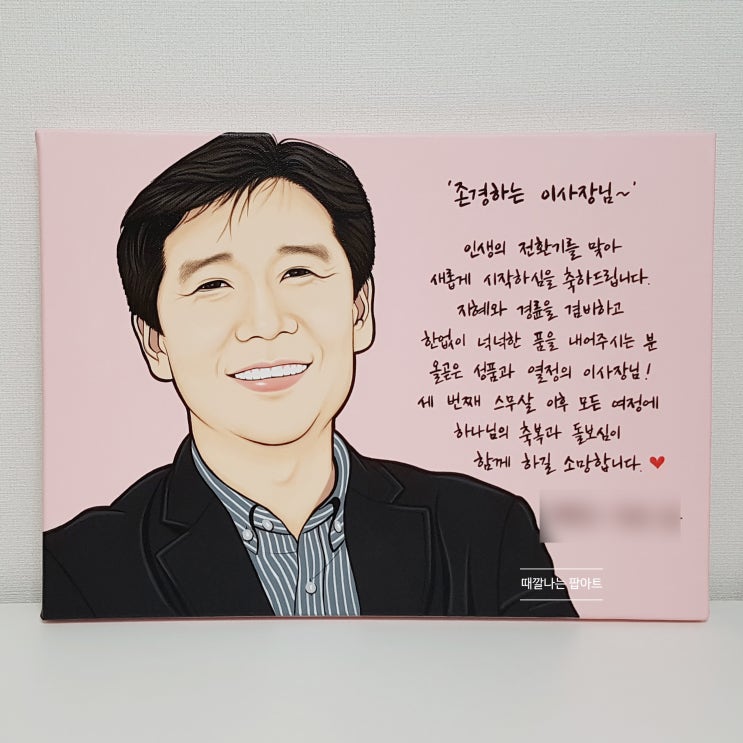 '존경하는 이사장님~'
인생의 전환기를 맞아
새롭게 시작하심을 축하드립니다.
지혜와 경륜을 겸비하고
한없이 넉넉한 품을 내어주시는 분
올곧은 성품과 열정의 이사장님!
세 번째 스무살 이후 모든 여정에
하나님의 축복과 돌보심이
함께 하길 소망합니다.
때깔나는 팝아트